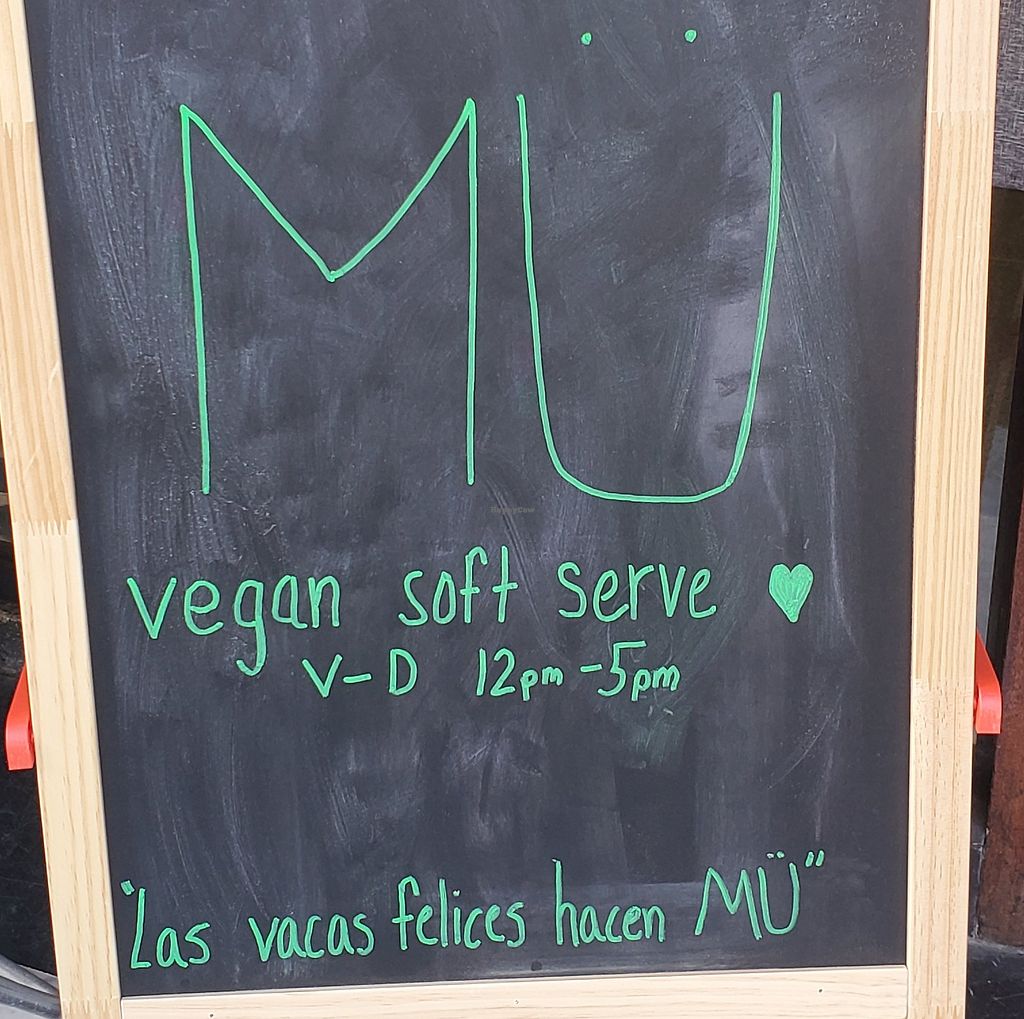 MÜ
HappyCow
vegan soft serve ♥
V-D 12pm-5pm
"Las vacas felices hacen MÜ"